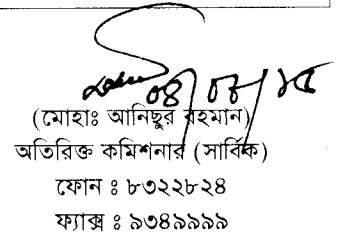 ০৪/০৮/১৫
(মোহাঃ আনিছুর রহমান)
অতিরিক্ত কমিশনার (সার্বিক)
ফোন ঃ ৮৩২২৮২৪
ফ্যাক্স ঃ ৯৩৪৯৯৯৯